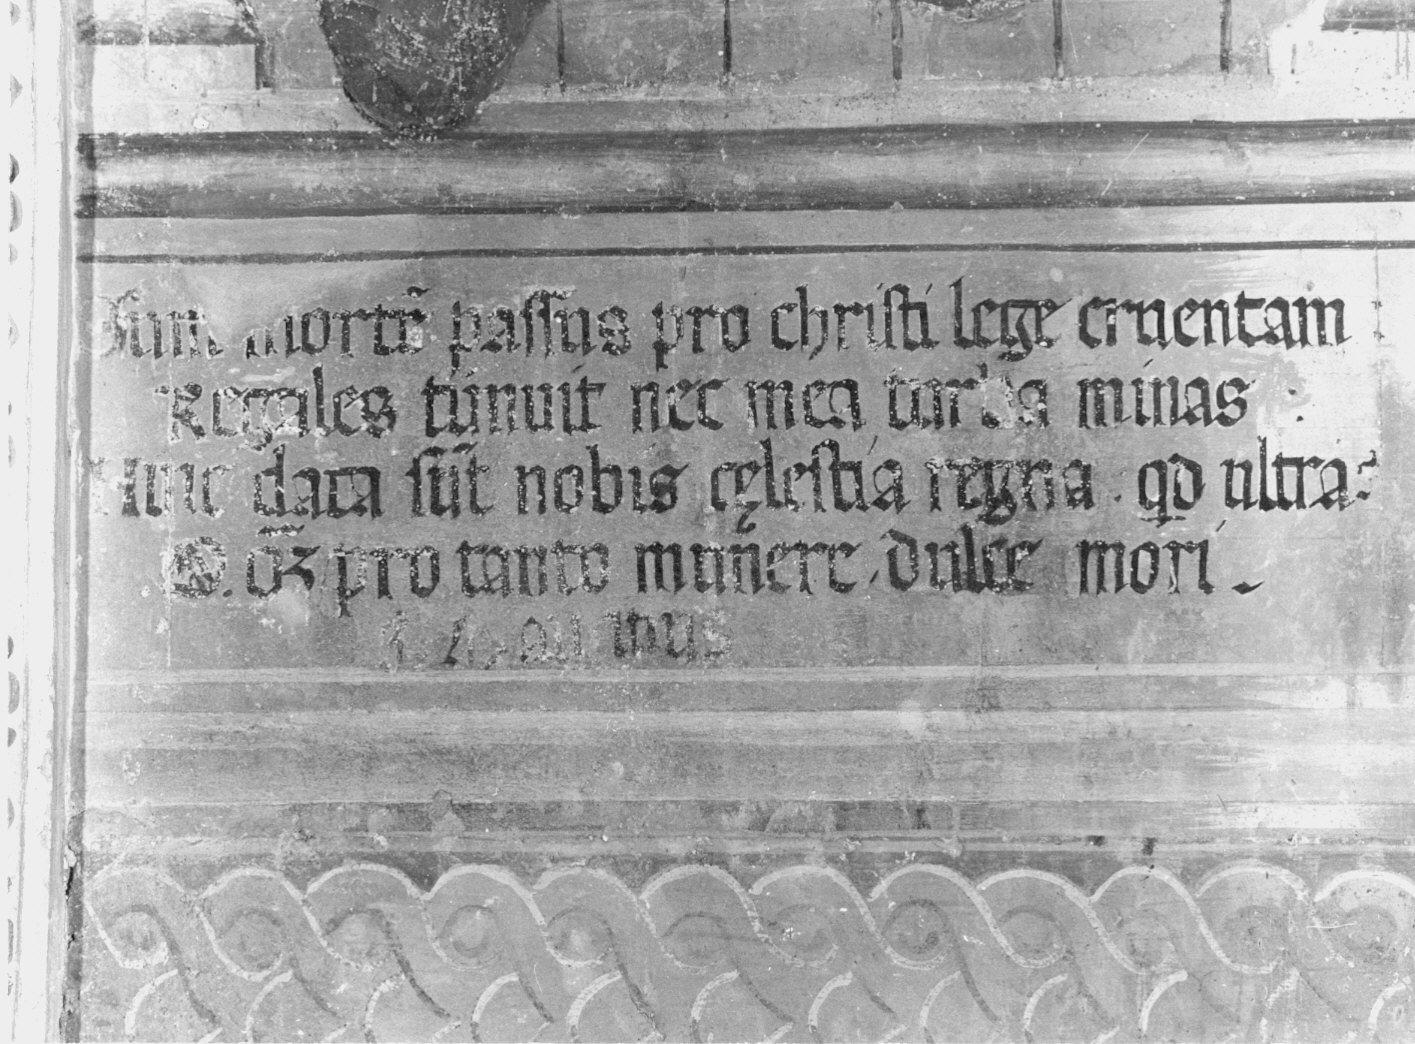 Sum mortē passus pro christi lege cruentam
Regales timuit nec mea turba minas
Hinc data sūt nobis cęlestia regna qd ultra
Est . oz̄ pro tanto munere dulce mori